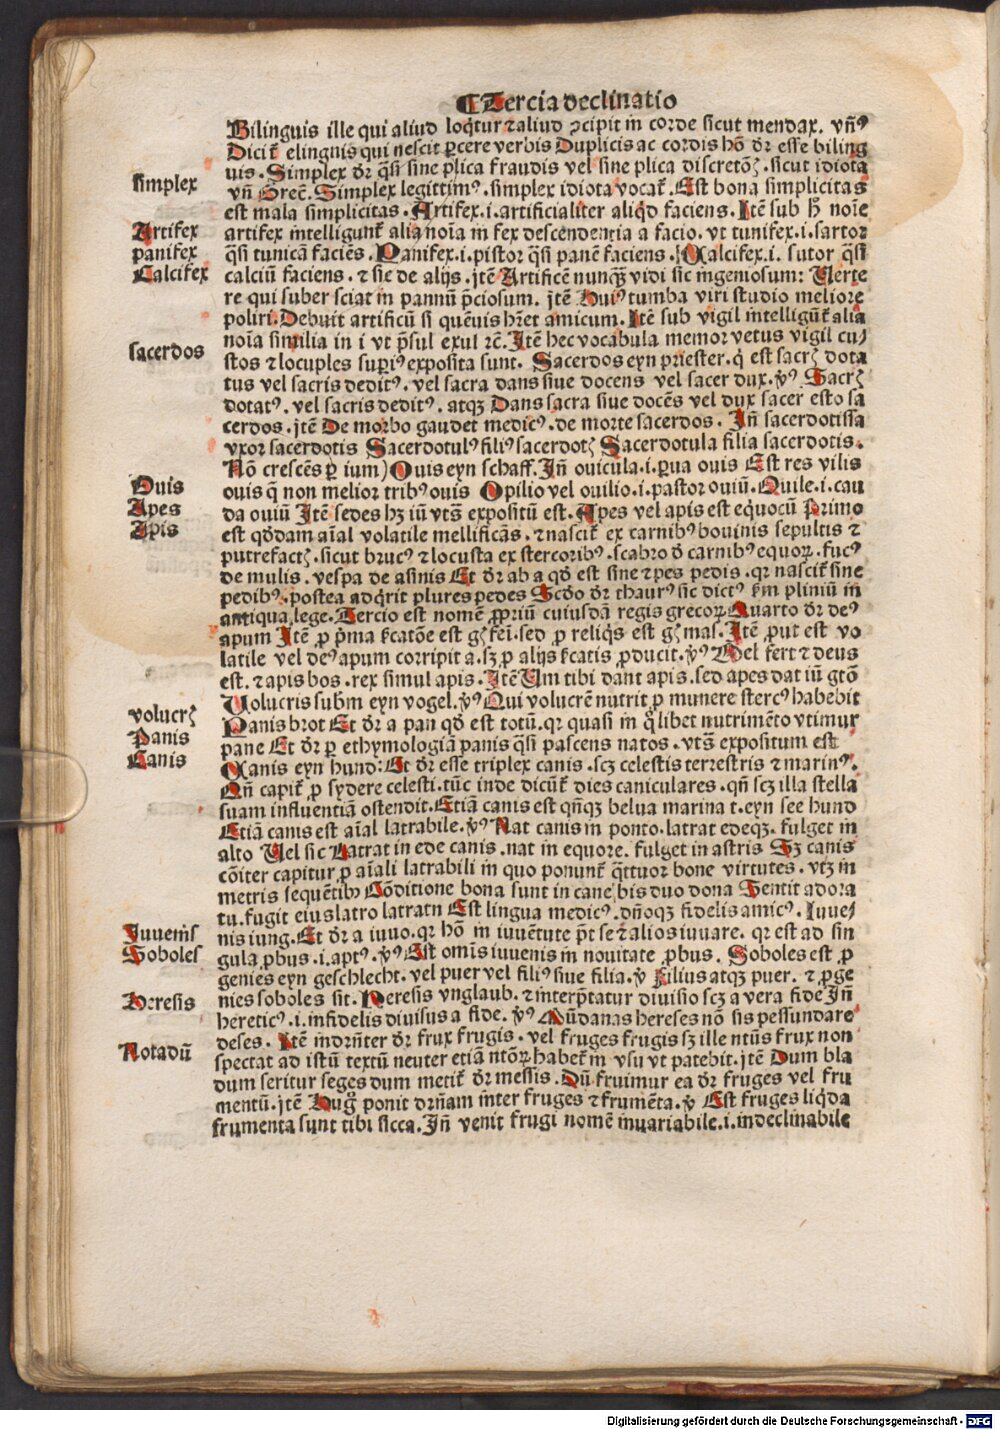 ¶ Tercia declinatio
Bilinguis ille qui aliud loq̃tur ⁊ aliud ↄcipit in corde sicut mendax. vñꝰ
Dicit̃ elinguis qui nescit ꝑcere verbis Duplicis ac cordis hõ dr̃ esse biling
uis. Simplex dr̃ q̃si sine plica fraudis vel sine plica discretõꝭ. sicut idiota
simplex
vñ Grec̃. Simplex legittimꝰ. simplex idiota vocat̃. Est bona simplicitas
est mala simplicitas. Artifex .i. artificialiter aliq̃d faciens. Itẽ sub hͦ noĩe
Artifex
artifex intelligunt̃ alia noĩa in fex descendentia a facio. vt tunifex .i. sartor
panifex
q̃si tunicã faciẽs. Panifex .i. pistor q̃si panẽ faciens. Calcifex .i. sutor q̃si
Calcifex
calciũ faciens. ⁊ sic de alijs. jtẽ Artificẽ nunqꝫ vidi sic ingeniosum: Verte
re qui suber sciat in pannũ p̃ciosum. jtẽ Huiꝰ tumba viri studio meliore
poliri. Debuit artificũ si quẽuis hr̃et amicum. Itẽ sub vigil intelligũt̃ alia
noĩa similia in i vt p̃sul exul ⁊c̃. Itẽ hec vocabula memor vetus vigil cu/
sacerdos
stos ⁊ locuples supiꝰ exposita sunt. Sacerdos eyn priester. q̃ est sacrꝭ dota
tus vel sacris deditꝰ. vel sacra dans siue docens vel sacer dux. v̾ꝰ Sacrꝭ
dotatꝰ. vel sacris deditꝰ. atqꝫ Dans sacra siue docẽs vel dux sacer esto sa
cerdos. jtẽ De morbo gaudet medicꝰ. de morte sacerdos. Iñ sacerdotissa
vxor sacerdotis Sacerdotulꝰ filiꝰ sacerdotꝭ Sacerdotula filia sacerdotis.
Nõ crescẽs ꝑ ium) Ouis eyn schaff. Iñ ouicula .i. ꝑua ouis Est res vilis
Ouis
ouis q̃ non melior tribꝰ ouis Opilio vel ouilio .i. pastor ouiũ. Ouile .i. cau
Apes
da ouiũ Itẽ sedes hꝫ iũ vts̃ expositũ est. Apes vel apis est equocũ Primo
Apis
est q̃ddam aĩal volatile mellificãs. ⁊ nascit̃ ex carnibꝰ bouinis sepultis ⁊
putrefactꝭ. sicut brucꝰ ⁊ locusta ex stercoribꝰ. scabro d̾ carnibꝰ equoꝝ. fucꝰ
de mulis. vespa de asinis Et dr̃ ab a qd̾ est sine ⁊ pes pedis. qr nascit̃ sine
pedibꝰ. postea adq̃rit plures pedes Scd̾o dr̃ thaurꝰ sic dictꝰ km̃ pliniũ in
antiqua lege. Tercio est nomẽ ꝓpriũ cuiusdã regis grecoꝝ Quarto dr̃ deꝰ
apum Itẽ ꝓ p̃ma kcatõe est gꝭ fei̾. sed ꝓ reliq̃s est gꝭ mas. Itẽ ꝓut est vo
latile vel deꝰ apum corripit a. sꝫ ꝓ alijs kcatis ꝓducit. v̾ꝰ Mel fert ⁊ deus
est. ⁊ apis bos. rex simul apis. Itẽ Um tibi dant apis. sed apes dat iũ gtõ
Uolucris subm̃ eyn vogel. v̾ꝰ Qui volucrẽ nutrit ꝓ munere stercꝰ habebit
volucrꝭ
Panis brot Et dr̃ a pan qd̾ est totũ. qr quasi in q̃libet nutrimẽto vtimur
Panis
pane Et dr̃ ꝑ ethymologiã panis q̃si pascens natos. vts̃ expositum est
Canis
Canis eyn hund: Et dr̃ esse triplex canis. scꝫ celestis terrestris ⁊ marinꝰ.
Qñ capit̃ ꝓ sydere celesti. tũc inde dicũt̃ dies caniculares. qñ scꝫ illa stella
suam influentiã ostendit. Etiã canis est qñqꝫ belua marina t. eyn see hund
Etiã canis est aĩal latrabile. v̾ꝰ Nat canis in ponto. latrat edeqꝫ. fulget in
alto Uel sic Latrat in ede canis. nat in equore. fulget in astris Sꝫ canis
cõiter capitur ꝓ aĩali latrabili in quo ponunt̃ q̃ttuor bone virtutes. vtꝫ in
metris sequẽtibꝫ Cõditione bona sunt in cane bis duo dona Sentit adora
tu. fugit eius latro latratu Est lingua medicꝰ. dñoqꝫ fidelis amicꝰ. Iuue/
Iuuenis
nis iung. Et dr̃ a iuuo. qr hõ in iuuẽtute p̃t se ⁊ alios iuuare. qr est ad sin
Soboles
gula ꝓbus .i. aptꝰ. v̾ꝰ Est om̃is iuuenis in nouitate ꝓbus. Soboles est ꝓ
genies eyn geschlecht. vel puer vel filiꝰ siue filia. v̾ Filius atqꝫ puer. ⁊ ꝓge
Heresis
nies soboles sit. Heresis vnglaub. ⁊ interp̃tatur diuisio scꝫ a vera fide Iñ
hereticꝰ .i. infidelis diuisus a fide. v̾ꝰ Mũdanas hereses nõ sis pessundare
deses. Itẽ indrñter dr̃ frux frugis. vel fruges frugis sꝫ ille ntũs frux non
Notadũ
spectat ad istũ textũ neuter etiã ntõꝝ habet̃ in vsu vt patebit. jtẽ Dum bla
dum seritur seges dum metit̃ dr̃ messis. Dũ fruimur ea dr̃ fruges vel fru
mentũ. jtẽ Hug̾ ponit drñam inter fruges ⁊ frumẽta. v̾ Est fruges liq̃da
frumenta sunt tibi sicca. Iñ venit frugi nomẽ inuariabile .i. indeclinabile
Digitalisierung gefördert durch die Deutsche Forschungsgemeinschaft - DFG